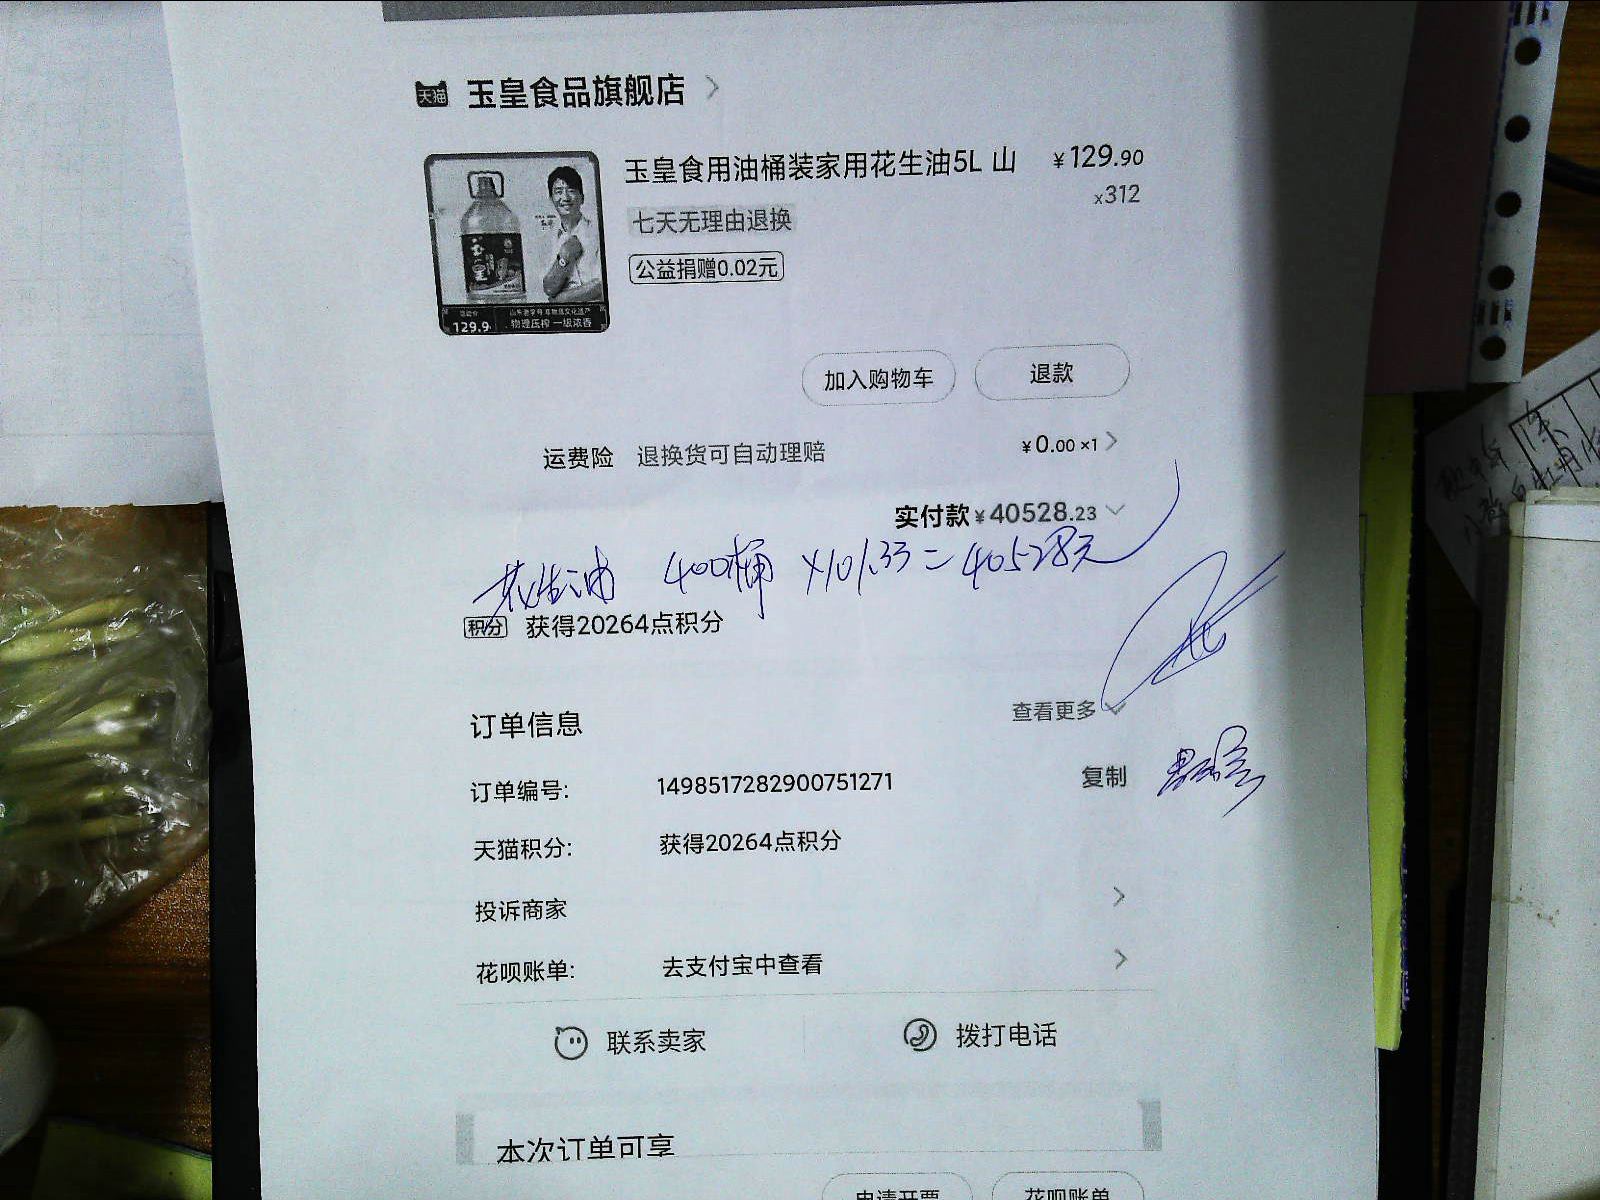 天猫 玉皇食品旗舰店
玉皇食用油桶装家用花生油5L 山 ¥129.90
x312
七天无理由退换
公益捐赠0.02元
129.9
物理压榨 一级浓香
加入购物车 退款
运费险 退换货可自动理赔 ¥0.00 ×1
实付款 ¥40528.23
花生油 400桶 ×101.33=40528元
积分 获得20264点积分
订单信息 查看更多
订单编号: 1498517282900751271 复制
天猫积分: 获得20264点积分
投诉商家
花呗账单: 去支付宝中查看
联系卖家 拨打电话
本次订单可享
申请开票 花呗账单